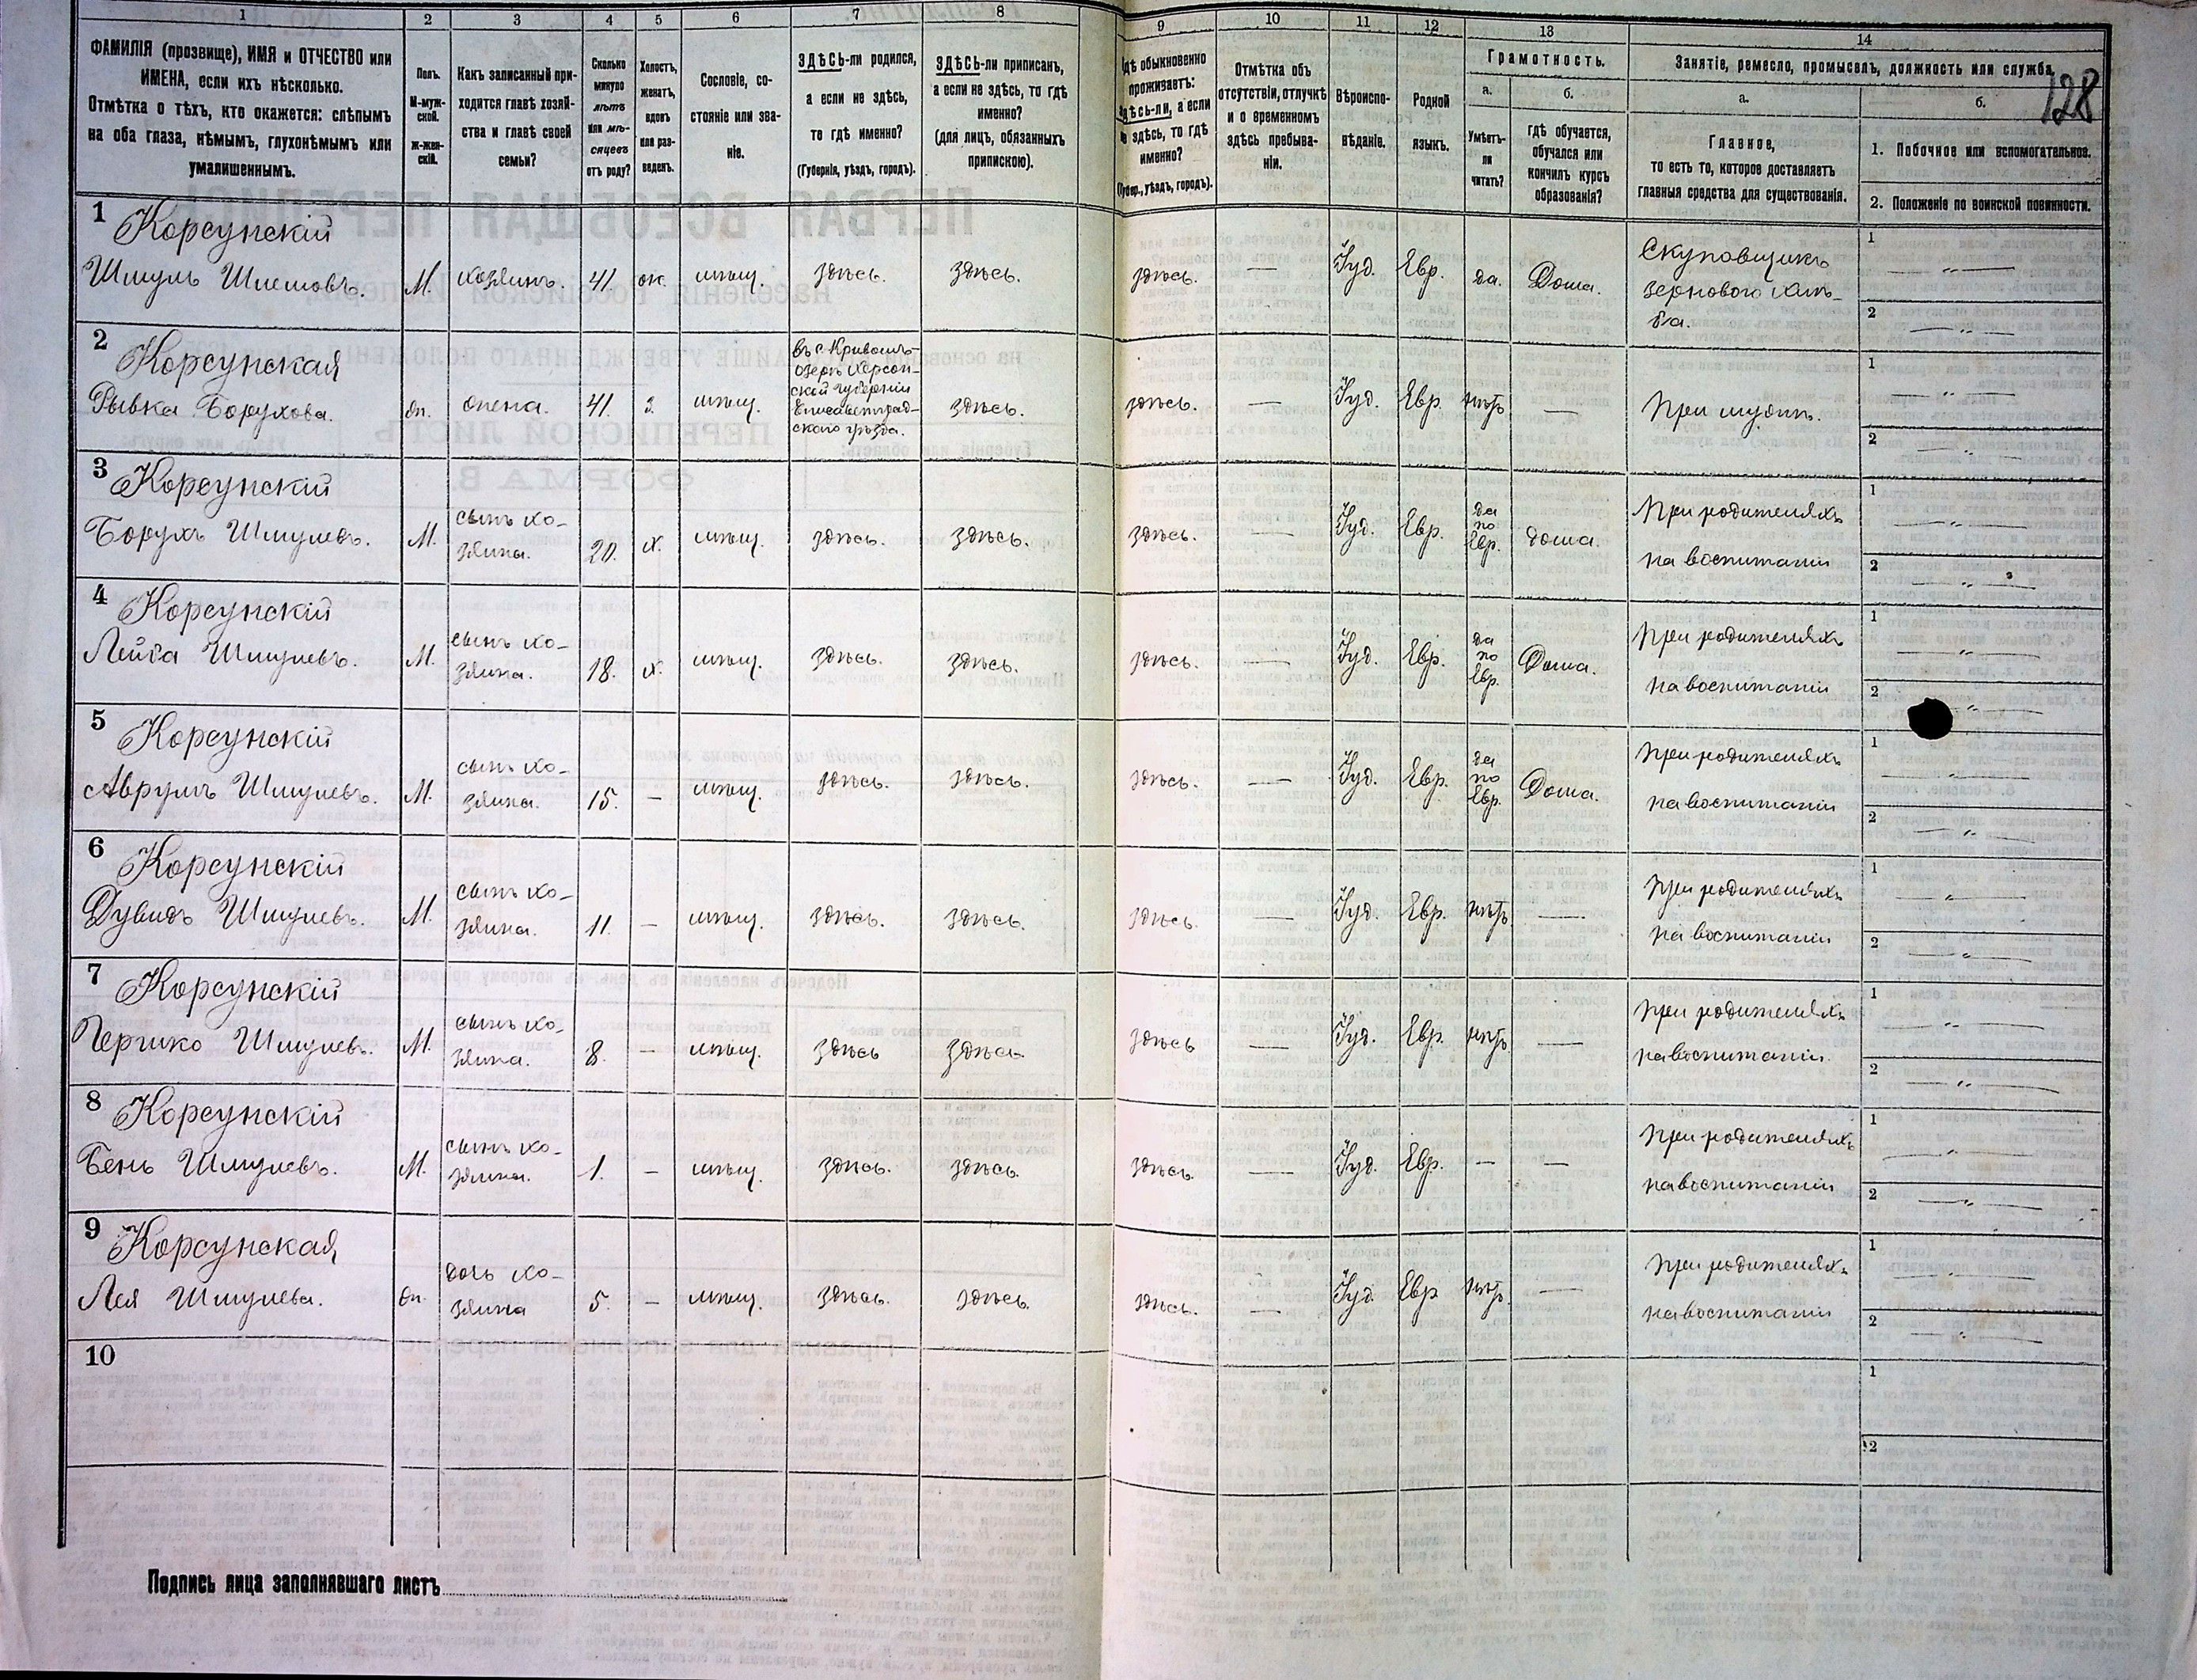 1
2
3
4
5
6
7
8
9
10
11
12
13
14
128
ФАМИЛІЯ (прозвище), ИМЯ и ОТЧЕСТВО или
ИМЕНА, если ихъ нѣсколько.
Отмѣтка о тѣхъ, кто окажется: слѣпымъ
на оба глаза, нѣмымъ, глухонѣмымъ или
умалишеннымъ.
Полъ.
М-муж-
ской.
Ж-жен-
скій.
Какъ записанный при-
ходится главѣ хозяй-
ства и главѣ своей
семьи?
Сколько
минуло
лѣтъ
или мѣ-
сяцевъ
отъ роду?
Холостъ,
женатъ,
вдовъ
или раз-
веденъ.
Сословіе, со-
стояніе или зва-
ніе.
ЗДѢСЬ-ли родился,
а если не здѣсь,
то гдѣ именно?
(Губернія, уѣздъ, городъ).
ЗДѢСЬ-ли приписанъ,
а если не здѣсь, то гдѣ
именно?
(для лицъ, обязанныхъ
припискою).
гдѣ обыкновенно
проживаетъ:
здѣсь-ли, а если
не здѣсь, то гдѣ
именно?
(Губер., уѣздъ, городъ).
Отмѣтка объ
отсутствіи, отлучкѣ
и о временномъ
здѣсь пребыва-
ніи.
Вѣроиспо-
вѣданіе.
Родной
языкъ.
Грамотность.
а.
б.
Умѣетъ-
ли
читать?
гдѣ обучается,
обучался или
кончилъ курсъ
образованія?
Занятіе, ремесло, промыселъ, должность или служба.
а.
б.
Главное,
то есть то, которое доставляетъ
главныя средства для существованія.
1. Побочное или вспомогательное.
2. Положеніе по воинской повинности.
1 Корсунскій
Шмуль Шлемовъ. М. хозяинъ. 41. жен. мѣщ. здѣсь. здѣсь. здѣсь. — Іуд. Евр. да. Дома.
Скуповщикъ
зернового хлѣ-
ба.
1 — „ —
2 — „ —
2 Корсунская
Рывка Борухова. ж. жена. 41. з. мѣщ.
въ с. Кривомъ-
Озерѣ Херсон-
ской губерніи
Елисаветград-
скаго уѣзда.
здѣсь. здѣсь. — Іуд. Евр. нѣтъ — При мужѣ.
1 — „ —
2 — „ —
3 Корсунскій
Борухъ Шмулевъ. М. сынъ хо-
зяина. 20. х. мѣщ. здѣсь. здѣсь. здѣсь. — Іуд. Евр. да
по
Евр. дома. При родителяхъ
на воспитаніи
1 — „ —
2 — „ —
4 Корсунскій
Лейба Шмулевъ. М. сынъ хо-
зяина. 18. х. мѣщ. здѣсь. здѣсь. здѣсь. — Іуд. Евр. да
по
Евр. Дома. При родителяхъ
на воспитаніи
1 — „ —
2 — „ —
5 Корсунскій
Аврумъ Шмулевъ. М. сынъ хо-
зяина. 15. — мѣщ. здѣсь. здѣсь. здѣсь. — Іуд. Евр. да
по
Евр. Дома. При родителяхъ
на воспитаніи
1 — „ —
2 — „ —
6 Корсунскій
Дувидъ Шмулевъ. М. сынъ хо-
зяина. 11. — мѣщ. здѣсь. здѣсь. здѣсь. — Іуд. Евр. нѣтъ — При родителяхъ
на воспитаніи
1 — „ —
2 — „ —
7 Корсунскій
Гершко Шмулевъ. М. сынъ хо-
зяина. 8. — мѣщ. здѣсь здѣсь здѣсь — Іуд. Евр. нѣтъ — При родителяхъ
на воспитаніи.
1 — „ —
2 — „ —
8 Корсунскій
Бень Шмулевъ. М. сынъ хо-
зяина. 1. — мѣщ. здѣсь. здѣсь. здѣсь. — Іуд. Евр. — — При родителяхъ
на воспитаніи
1 — „ —
2 — „ —
9 Корсунская
Лея Шмулева. ж. дочь хо-
зяина 5. — мѣщ. здѣсь. здѣсь. здѣсь. — Іуд. Евр нѣтъ — При родителяхъ
на воспитаніи
1 — „ —
2 — „ —
10
1
2
Подпись лица заполнявшаго листъ